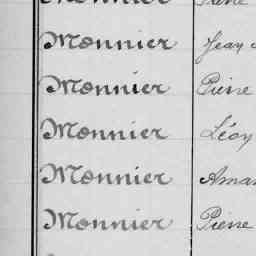 Monnier
Monnier Jean
Monnier Pierre
Monnier Léon
Monnier Aman
Monnier Pierre